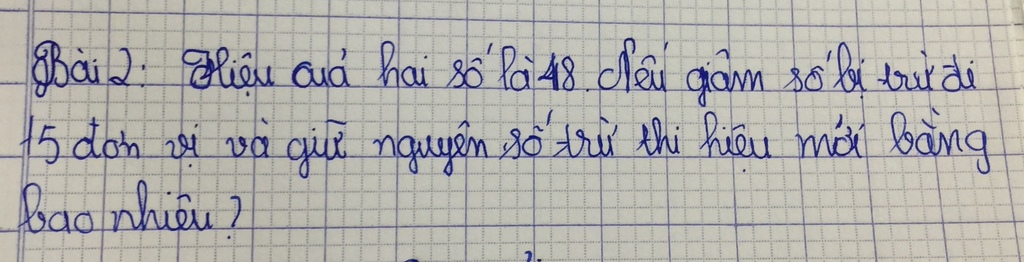 Bài 2: Hiệu cuả hai số là 48. Nếu giảm số bị trừ đi
15 đơn vị và giữ nguyên số trừ thì hiệu mới bằng
bao nhiêu?